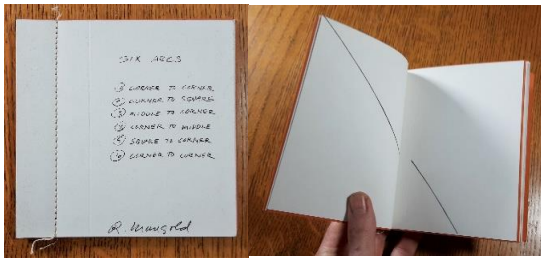 SIX ARCS
1 CORNER TO CORNER
2 CORNER TO SQUARE
3 MIDDLE TO CORNER
4 CORNER TO MIDDLE
5 SQUARE TO CORNER
6 CORNER TO CORNER
R. Mangold